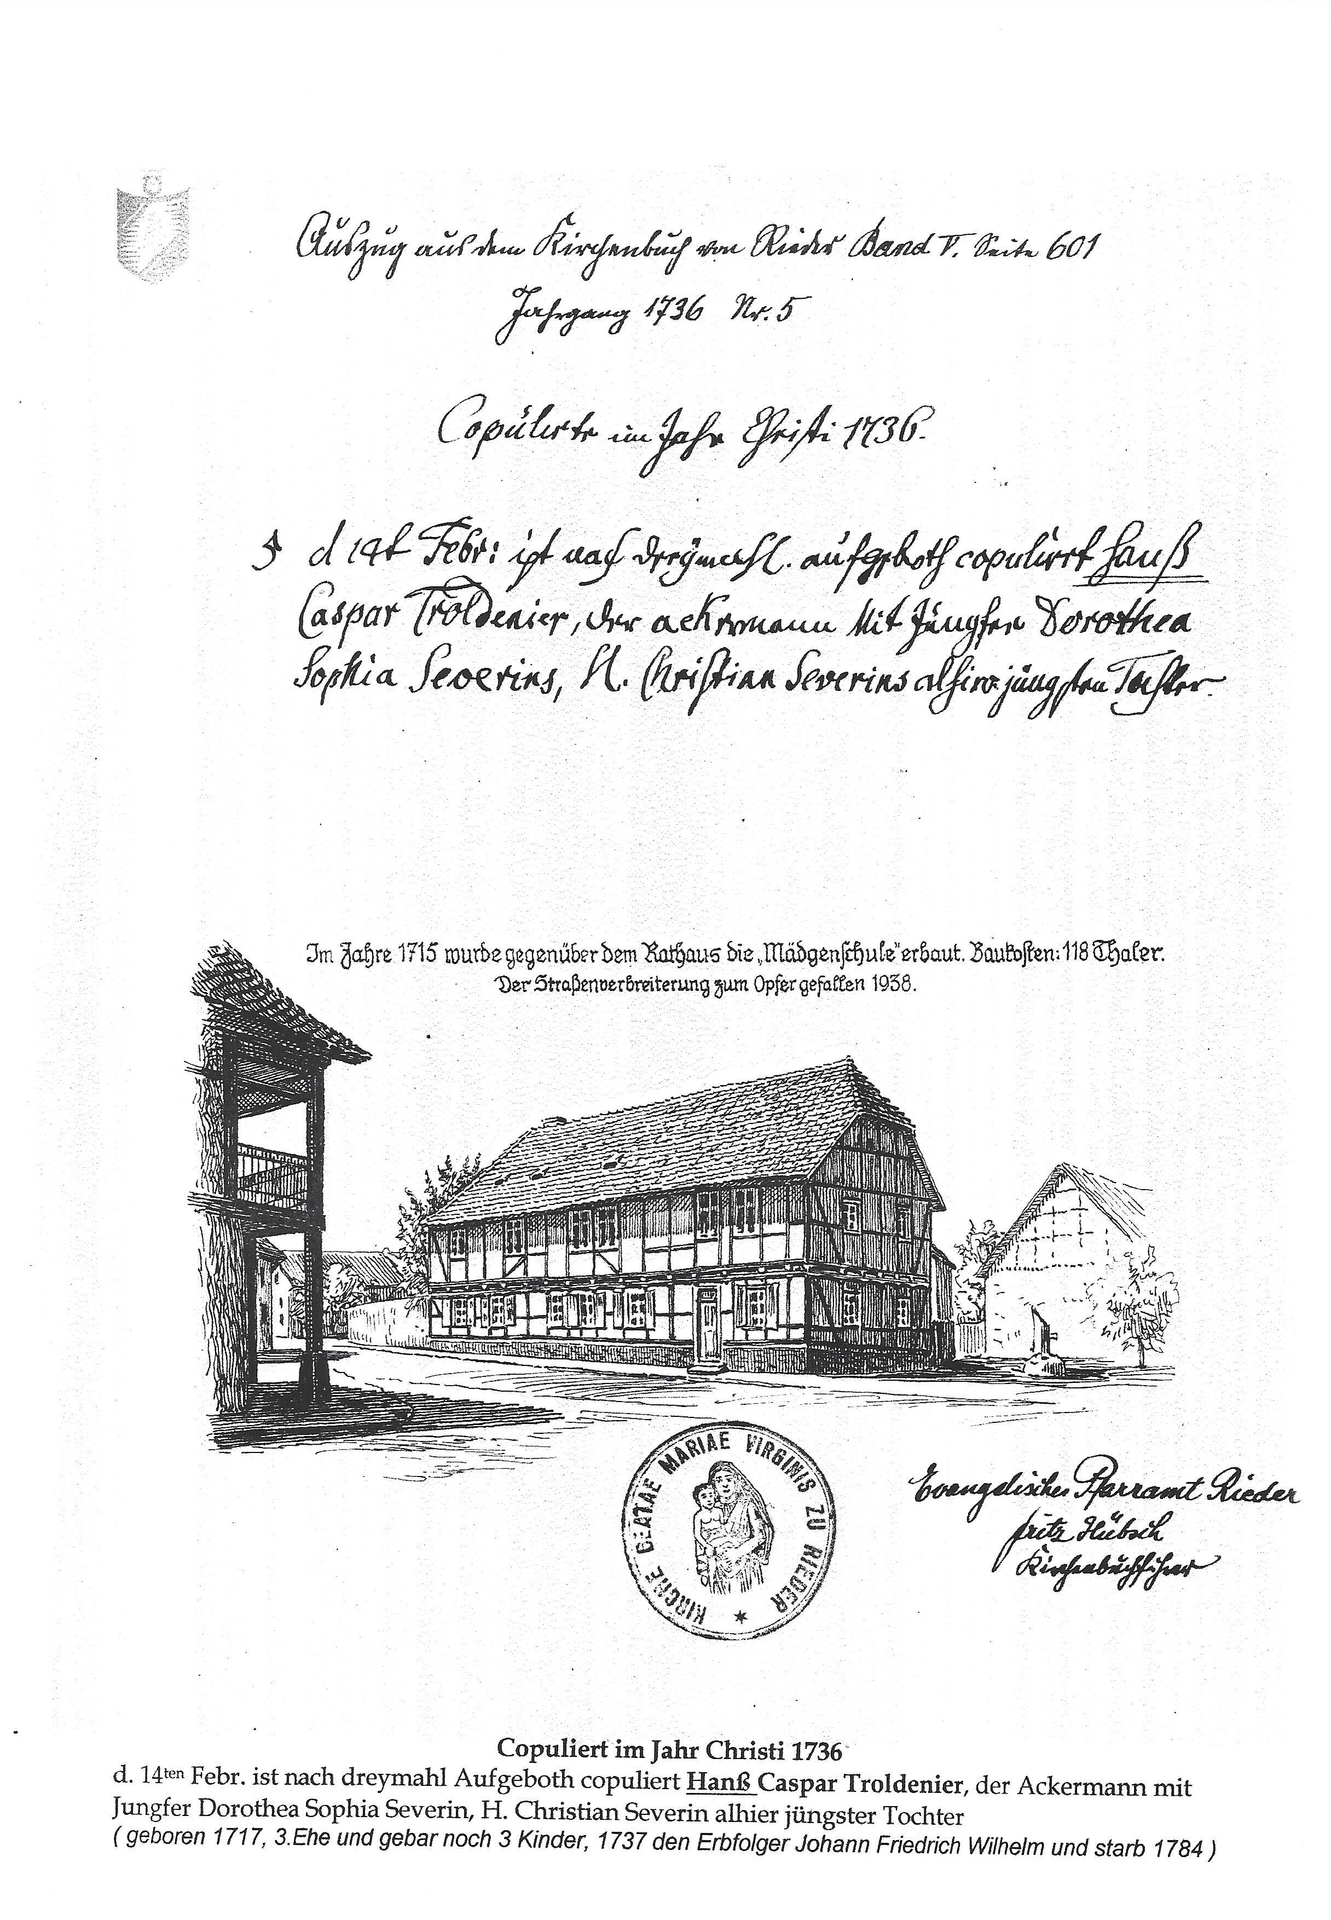 Auszug aus dem Kirchenbuch von Rieder Band V. Seite 601
Jahrgang 1736 Nr. 5
Copulirte im Jahr Christi 1736.
5 d 14t Febr: ist nach dreymahl. aufgeboth copulirt Hanß
Caspar Troldenier, der ackermann Mit Jüngfer Dorothea
Sophia Severins, H. Christian Severins alhier jüngsten Tochter.
Im Jahre 1715 wurde gegenüber dem Rathaus die „Mädgenschule“ erbaut. Baukosten: 118 Thaler.
Der Straßenverbreiterung zum Opfer gefallen 1938.
KIRCHE BEATAE MARIAE VIRGINIS ZU RIEDER
Evangelisches Pfarramt Rieder
Fritz Hübsch
Kirchenbuchführer
Copuliert im Jahr Christi 1736
d. 14ten Febr. ist nach dreymahl Aufgeboth copuliert Hanß Caspar Troldenier, der Ackermann mit
Jungfer Dorothea Sophia Severin, H. Christian Severin alhier jüngster Tochter
( geboren 1717, 3.Ehe und gebar noch 3 Kinder, 1737 den Erbfolger Johann Friedrich Wilhelm und starb 1784 )